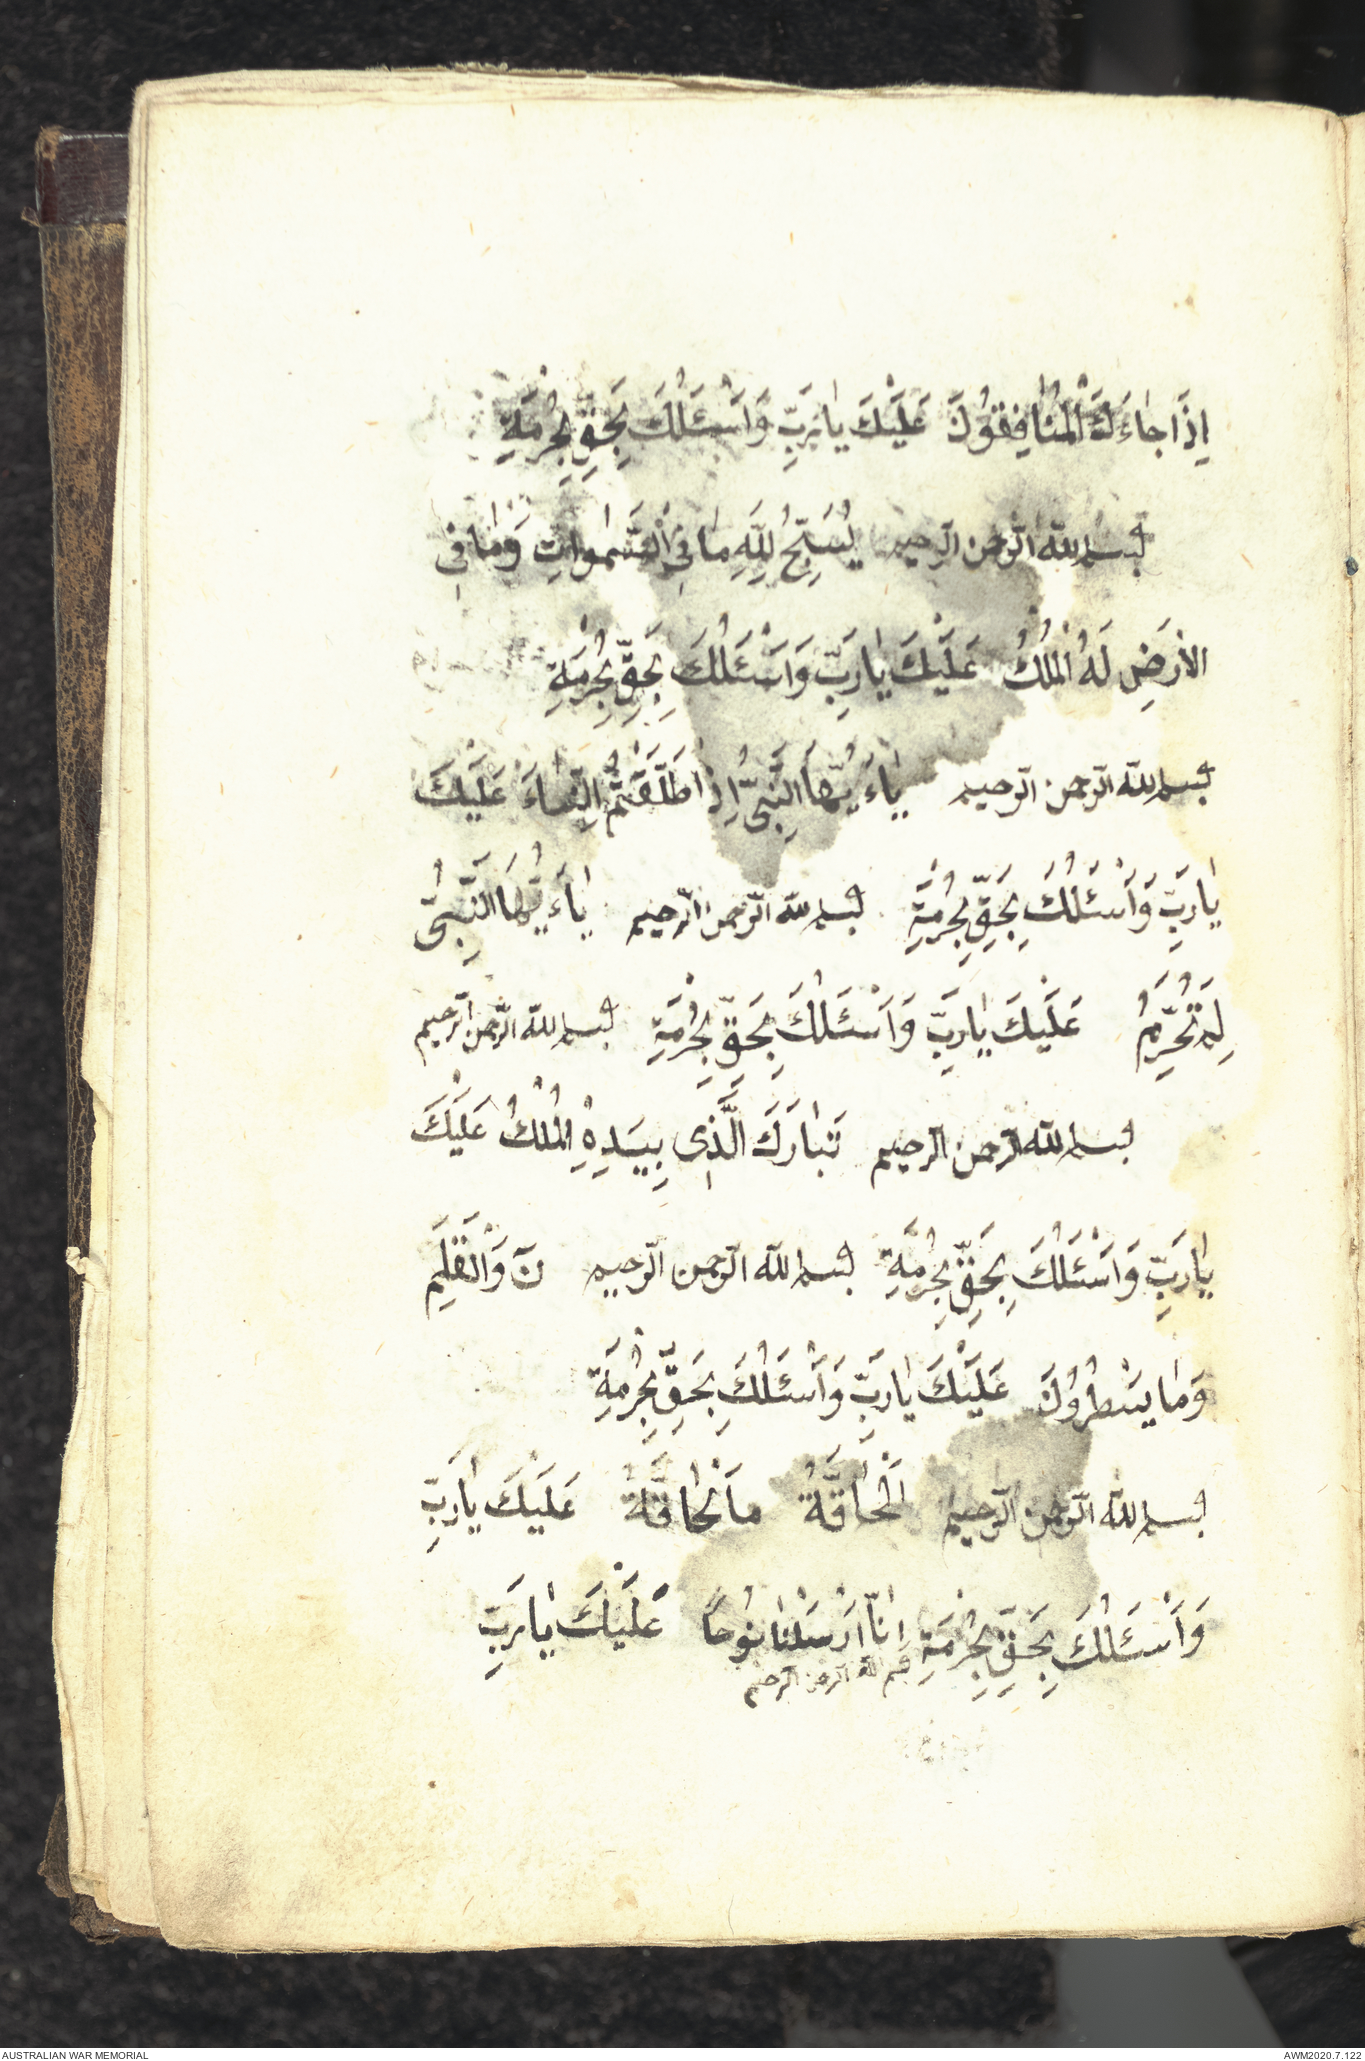 اِذَا جَاءَكَ الْمُنَافِقُونَ عَلَيْكَ يَا رَبِّ وَاَسْئَلُكَ بِحَقِّ بِحُرْمَةِ
بسم الله الرحمن الرحيم يُسَبِّحُ لِلّٰهِ مَا فِى السَّمٰوَاتِ وَمَا فِى
الْاَرْضِ لَهُ الْمُلْكُ عَلَيْكَ يَا رَبِّ وَاَسْئَلُكَ بِحَقِّ بِحُرْمَةِ
بسم الله الرحمن الرحيم يَاءَيُّهَا النَّبِىُّ اِذَا طَلَّقْتُمُ النِّسَاءَ عَلَيْكَ
يَا رَبِّ وَاَسْئَلُكَ بِحَقِّ بِحُرْمَةِ بسم الله الرحمن الرحيم يَاءَيُّهَا النَّبِىُّ
لِمَ تُحَرِّمُ عَلَيْكَ يَا رَبِّ وَاَسْئَلُكَ بِحَقِّ بِحُرْمَةِ بسم الله الرحمن الرحيم
بسم الله الرحمن الرحيم تَبَارَكَ الَّذِى بِيَدِهِ الْمُلْكُ عَلَيْكَ
يَا رَبِّ وَاَسْئَلُكَ بِحَقِّ بِحُرْمَةِ بسم الله الرحمن الرحيم نٓ وَالْقَلَمِ
وَمَا يَسْطُرُونَ عَلَيْكَ يَا رَبِّ وَاَسْئَلُكَ بِحَقِّ بِحُرْمَةِ
بسم الله الرحمن الرحيم اَلْحَاقَّةُ مَا الْحَاقَّةُ عَلَيْكَ يَا رَبِّ
وَاَسْئَلُكَ بِحَقِّ بِحُرْمَةِ اِنَّا اَرْسَلْنَا نُوحًا عَلَيْكَ يَا رَبِّ
بسم الله الرحمن الرحيم
AUSTRALIAN WAR MEMORIAL
AWM2020.7.122